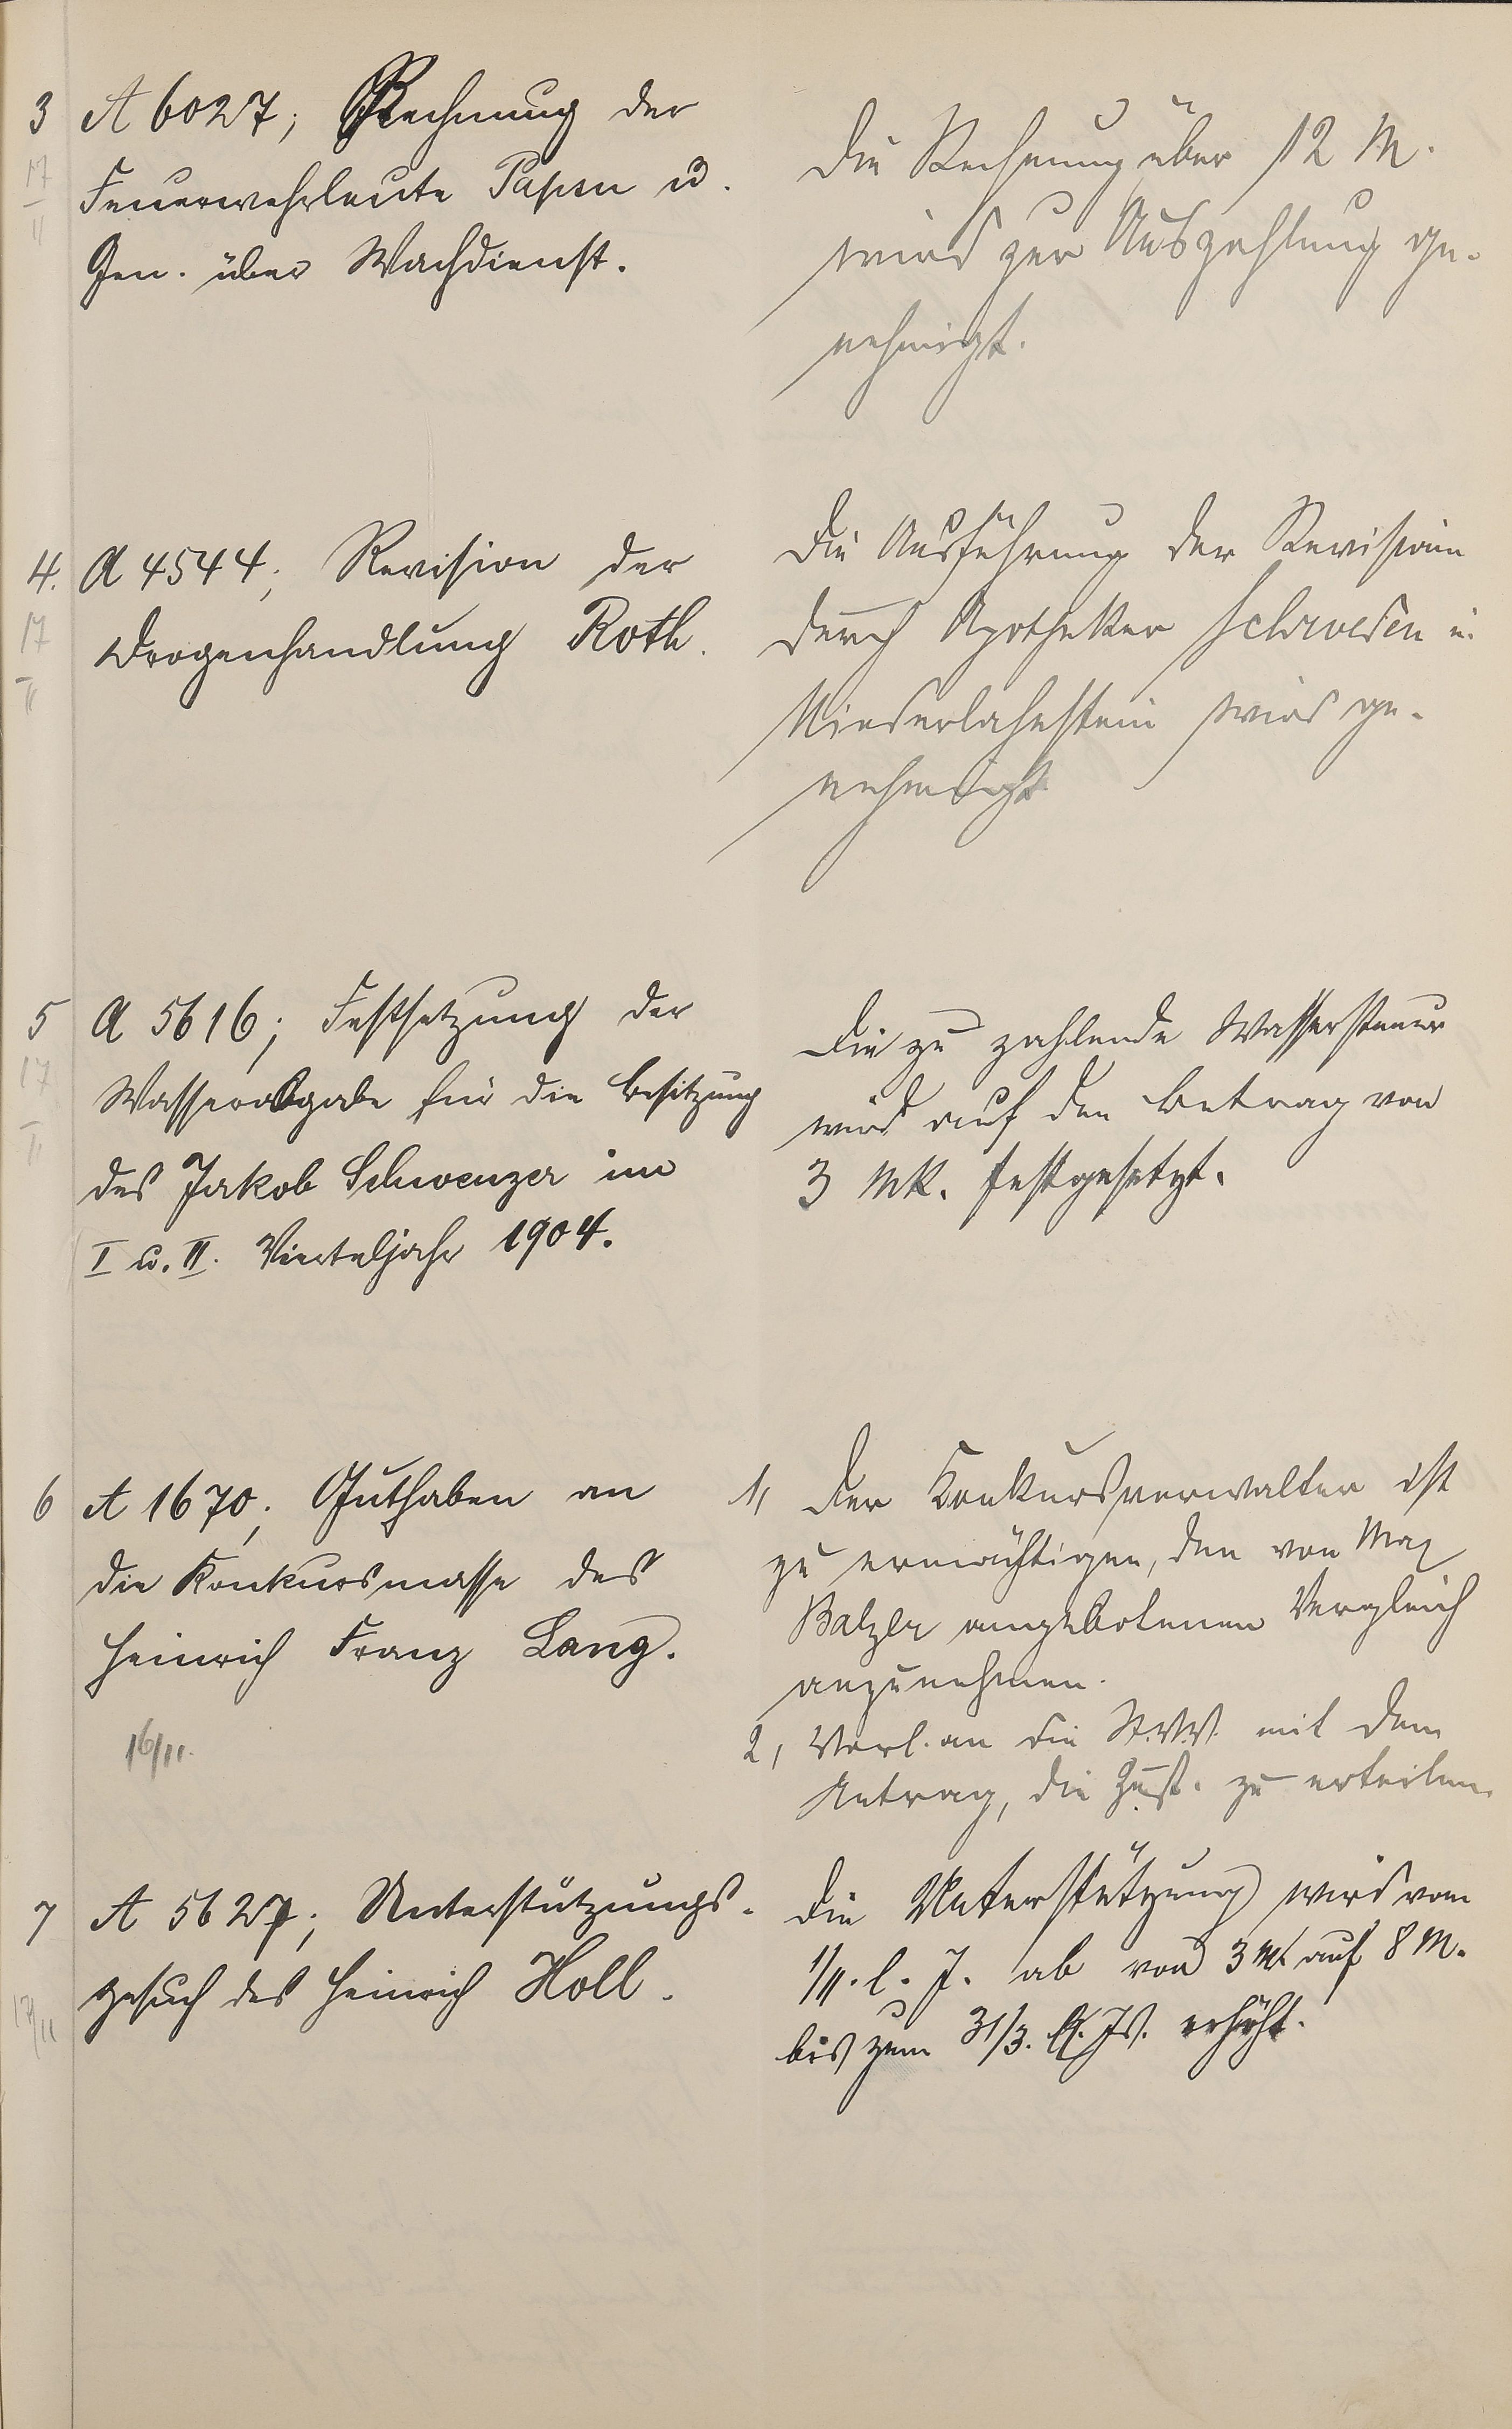 3 A 6027; Rechnung der
17
II
Feuerwehrleute Papen u.
Gen. über Wachdienst.
Die Rechnung über 12 M.
wird zur Auszahlung ge-
nehmigt.
4. A 4544; Revision der
17
II
Drogenhandlung Roth.
Die Ausführung der Revision
durch Apotheker in
Niederlahnstein wird ge-
nehmigt
5 A 5616; Festsetzung der
17
II
Wasserabgabe für die Besitzung
des Jakob Schwenzer im
I u. II. Vierteljahr 1904.
Die zu zahlende Wassersteuer
wird auf den Betrag von
3 Mk. festgesetzt.
6 A 1670; Guthaben an
die Konkursmasse des
Heinrich Franz Lang.
16/11.
1, Der Konkursverwalter ist
zu ermächtigen, den von Max
Balzer angebotenen Vergleich
anzunehmen.
2, Vorl. an die St.V.V. mit dem
Antrag, die Zust. zu erteilen.
7 A 5627; Unterstützungs-
gesuch des Heinrich Holl.
17/11
Die Unterstützung wird vom
1/11. l. J. ab von 3 M. auf 8 M.
bis zum 31/3. Js. erhöht.